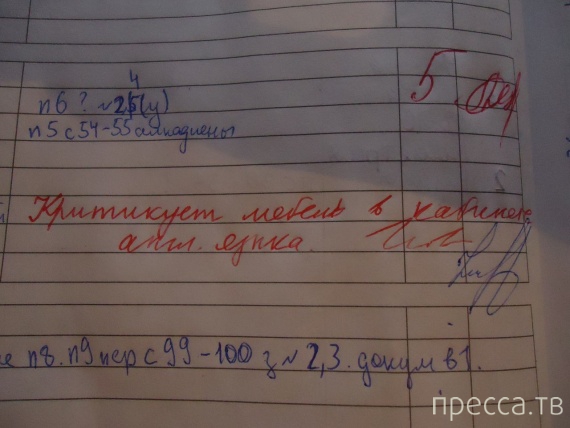 4
п6? №25(у) 5
п5 с54-55 алкадиены
Критикует мебель в кабинете
англ. языка.
е п8. п9 пер с 99-100 з №2,3. докум в 1.
пресса.тв